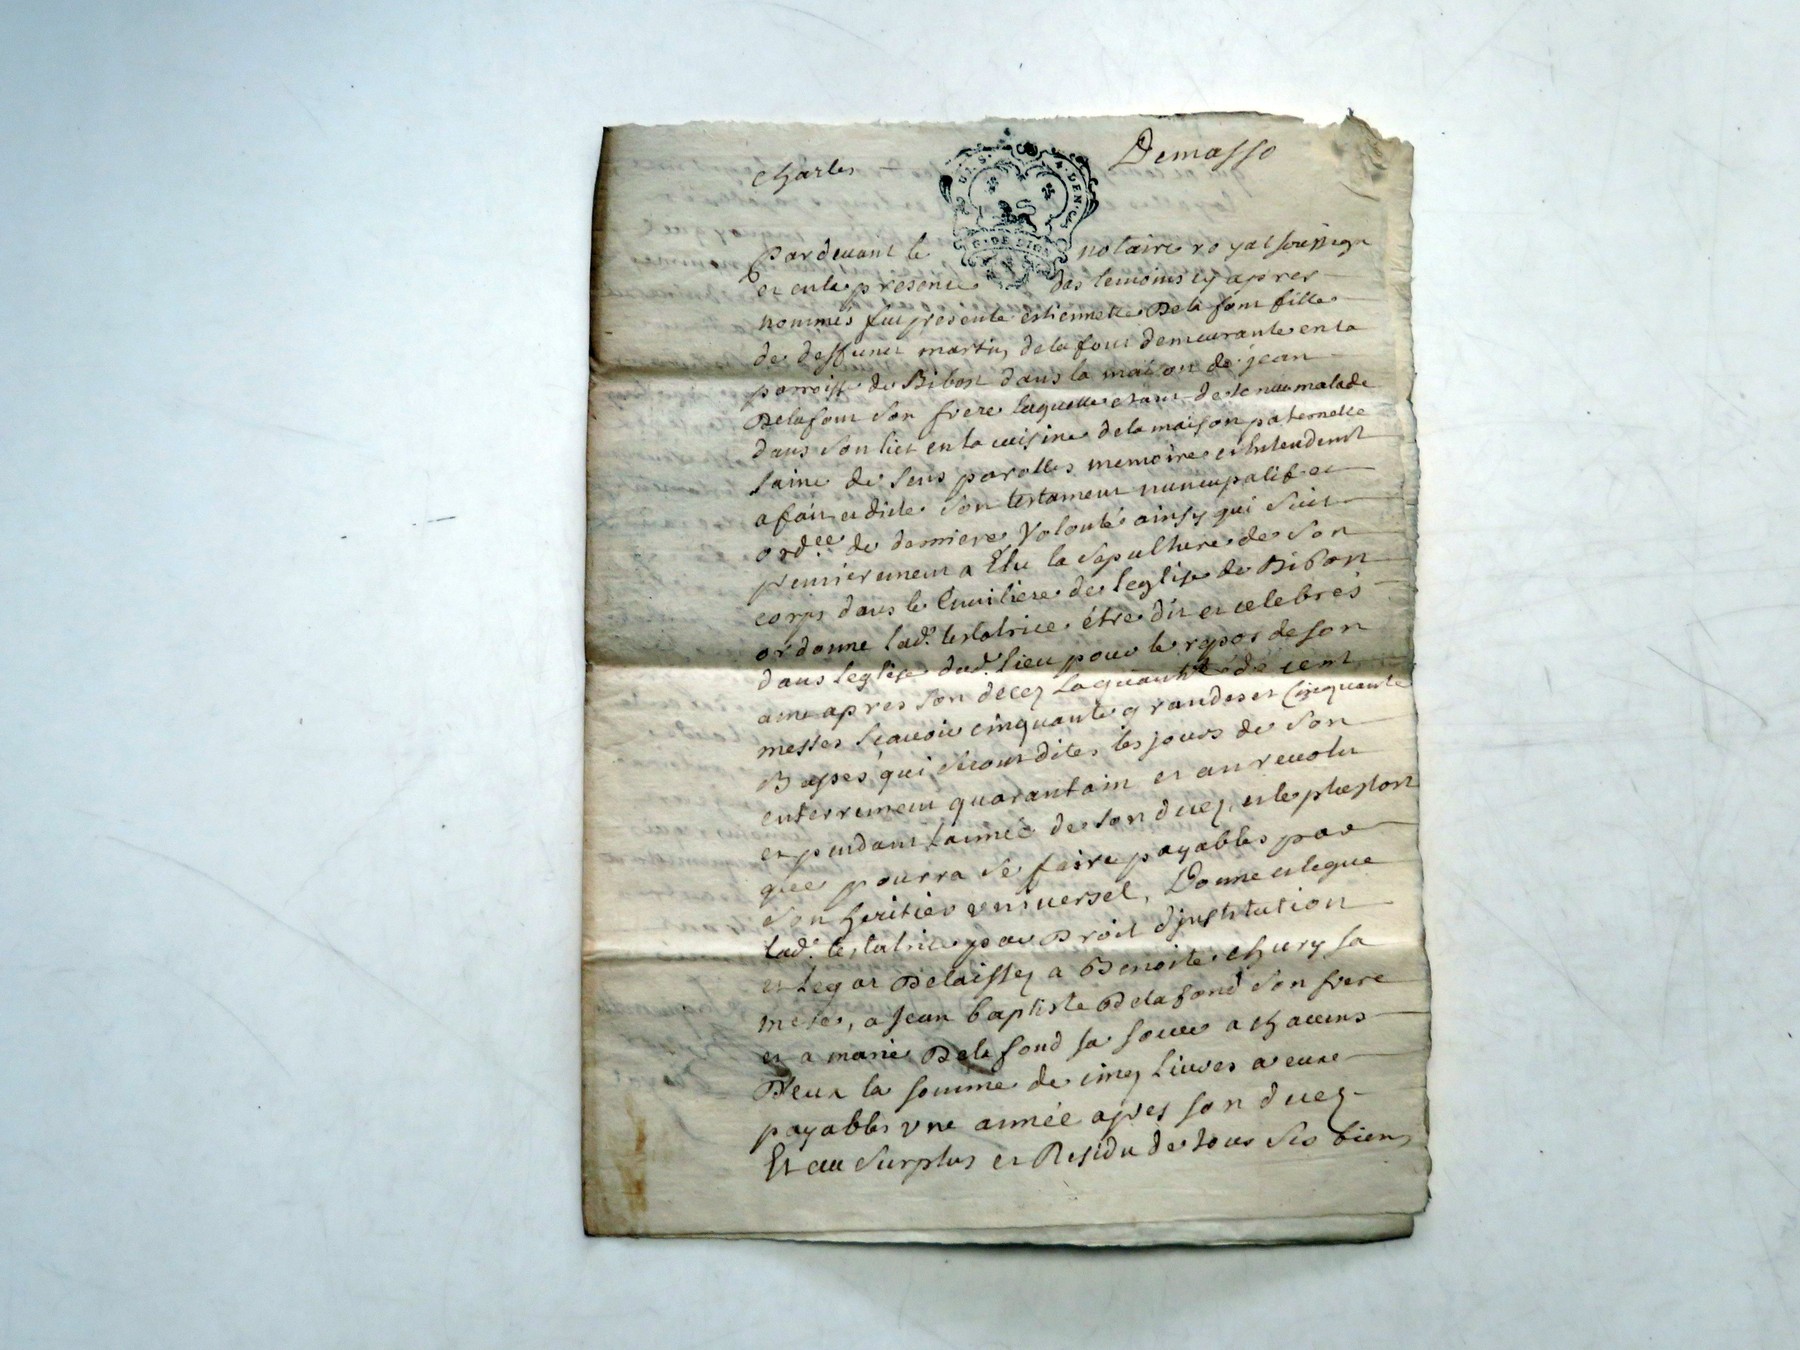 charles Demasso
G. DE DIO
Pardevant le notaire royal soussigne
et en la presence des temoins cy apres
nommés fut presente estiennette Delafont fille
de deffunct martin delafont demeurante en la
parroisse de Bibost dans la maison de jean
Delafont son frere laquelle etant detenue malade
dans son lict en la cuisine de la maison paternelle
saine de sens parolles memoire et Entendemt
a fait et dicte son testament nuncupatif et
ordce de derniere Volonté ainsy qui suit
premierement a Elu la sepulture de son
corps dans le Cimitiere de leglise de Bibon
ordonne lade testatrice étre dit et celebrés
dans leglise dud. lieu pour le repos de son
ame apres son decez la quantité de cent
messes scavoir cinquante grandes et Cinquante
Basses qui seront dites les jours de son
enterrement quarantain et an revolu
et pendant lannée de son decez et le plustost
que pourra se faire payables par
son heritier universel, Donne et legue
lade testatrice par Droit djnstitution
et legat Delaissez a Benoite chury sa
mere, a Jean baptiste Delafond son frere
et a marie Delafond sa soeur a chacuns
D'eux la somme de cinq livres a eux
payables une année apres son decez
Et au surplus et Residu de tous ses biens